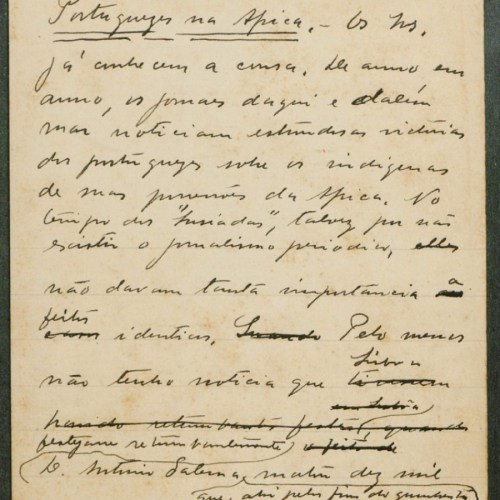 Portuguezes na Africa. — Os Srs.
já conhecem a cousa. De anno em
anno, os jornaes daqui e dalém
mar noticiam estrondosas victorias
dos portuguezes sobre os indigenas
de suas possessões da Africa. No
tempo dos "Lusiadas", talvez por não
existir o jornalismo periodico, elles
não davam tanta importancia a
feitos
identicos. Quando Pelo menos
não tenho noticia que Lisboa
festejasse retumbantemente o feito de
D. Antonio Saldanha, matou dez mil
que, ahi pelos fins do quinhentos